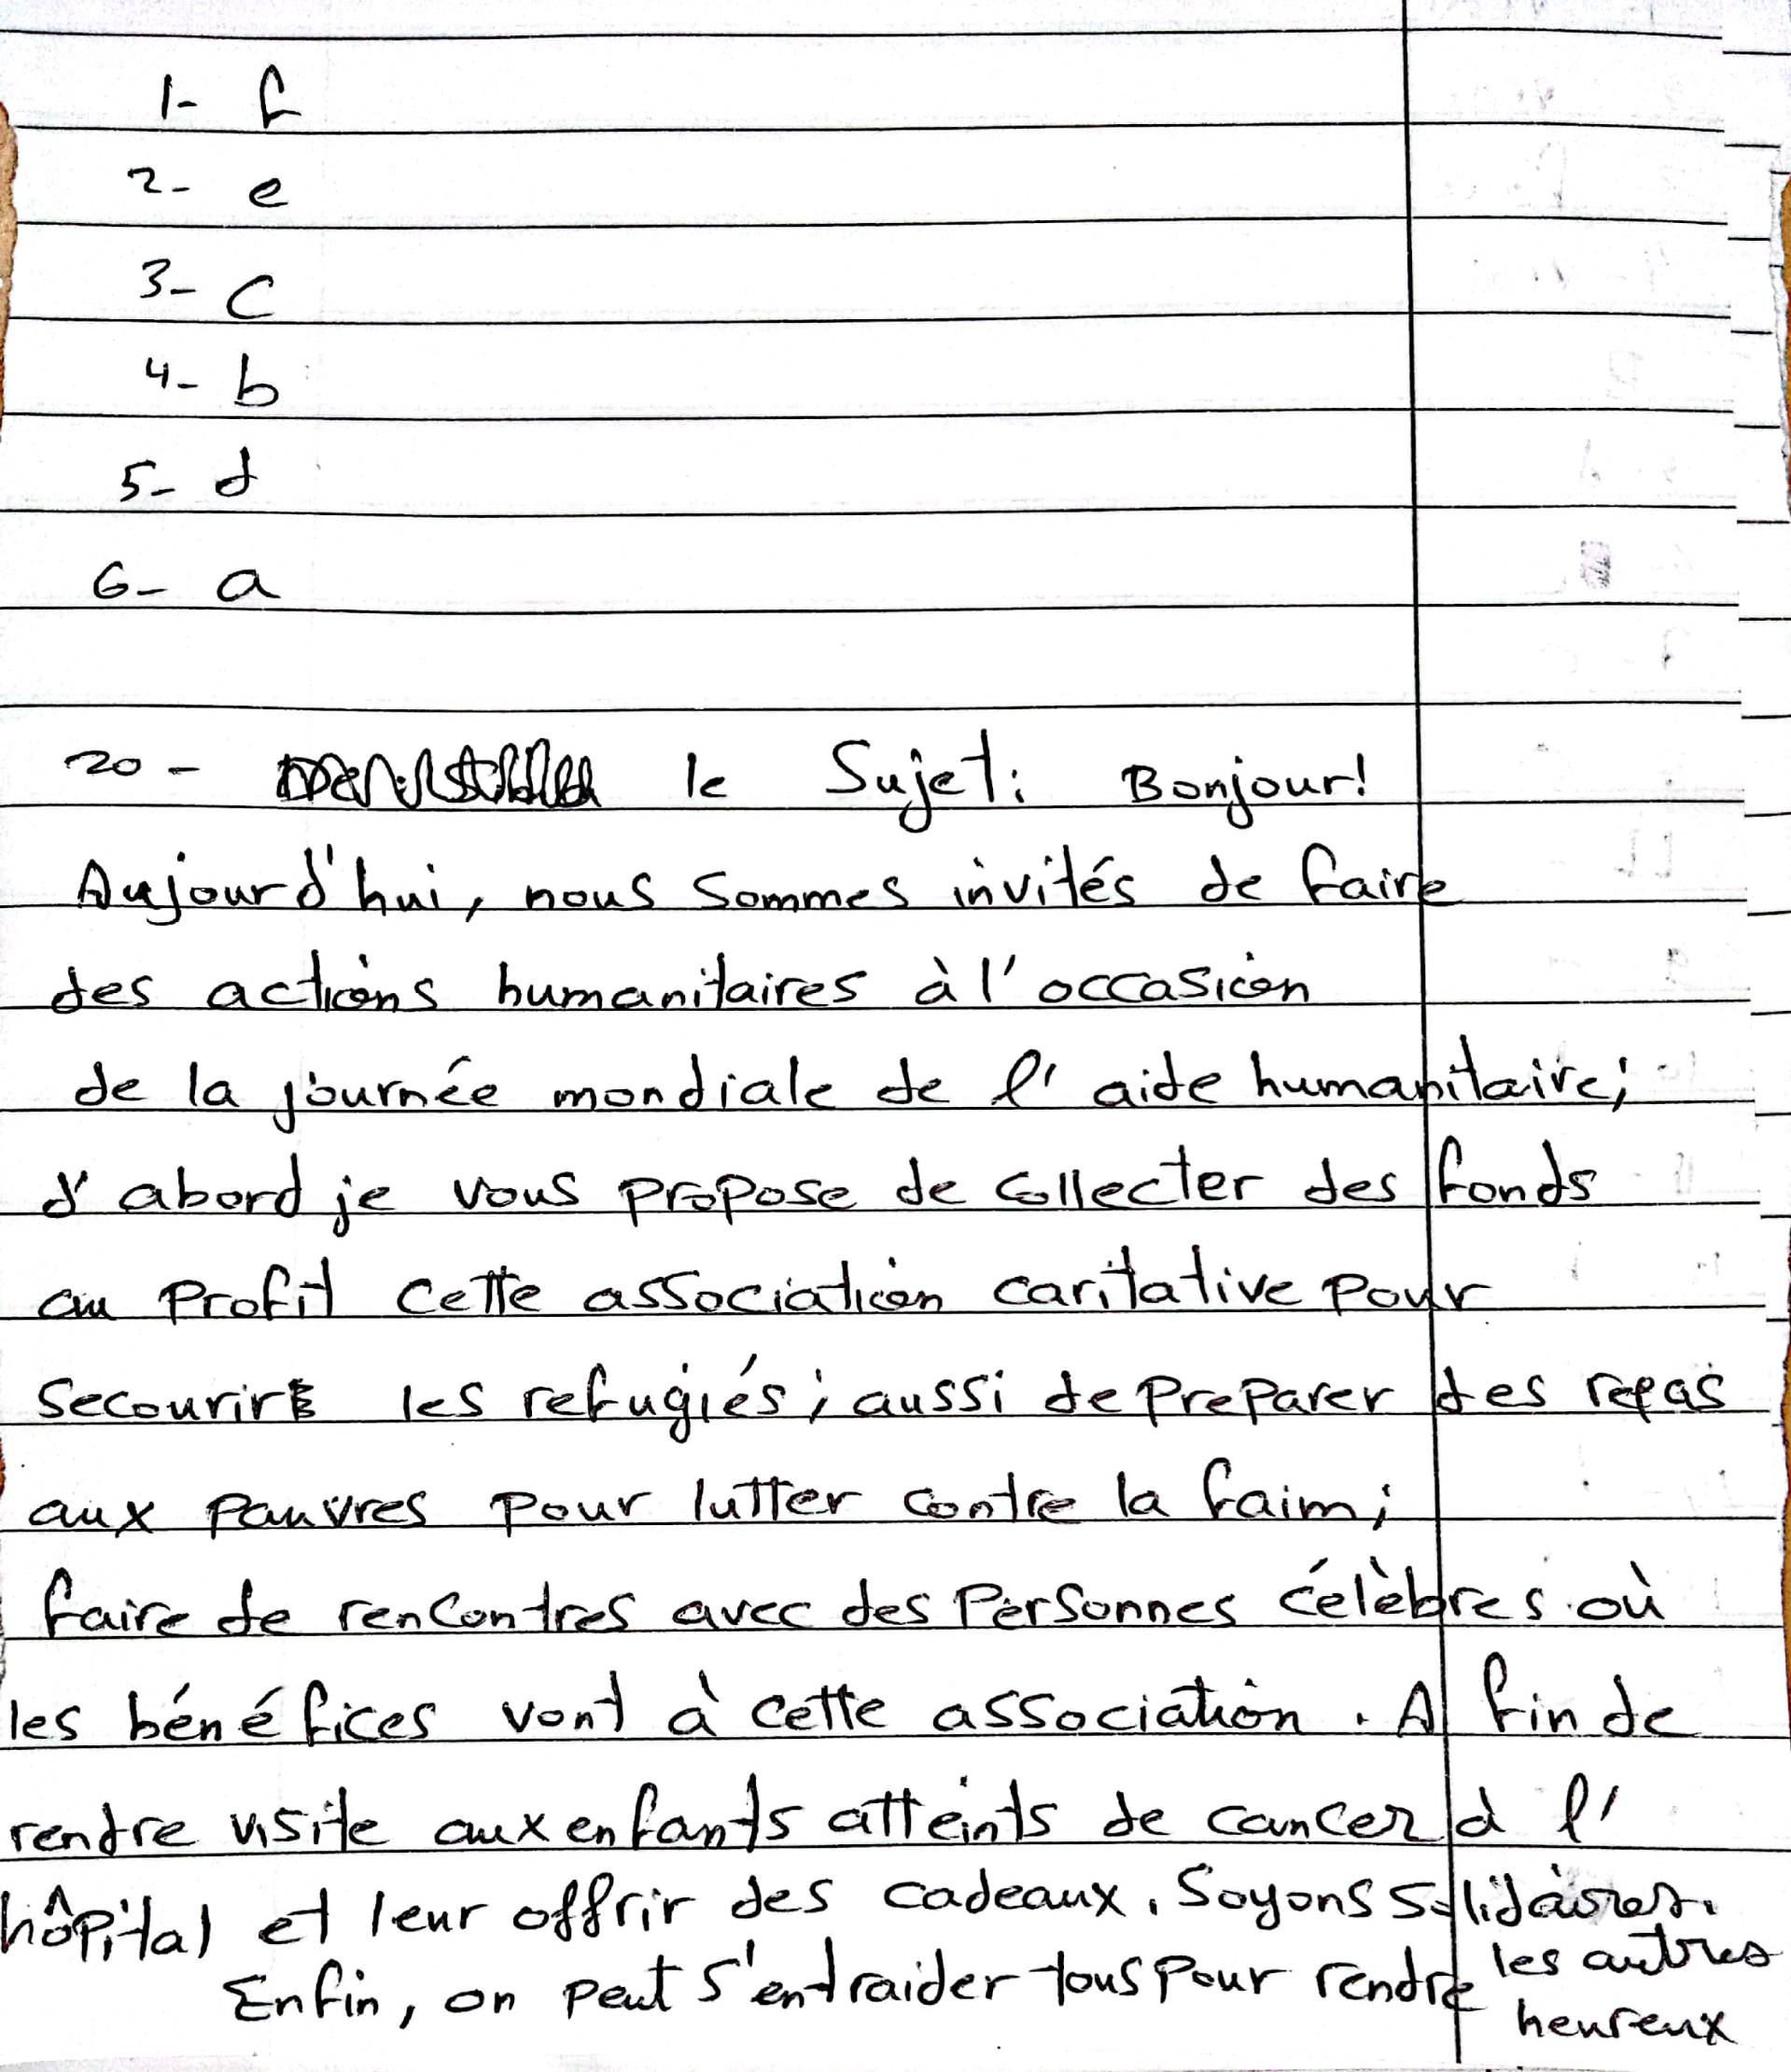 1- f
2- e
3- c
4- b
5- d
6- a
20 - le Sujet: Bonjour!
Aujourd'hui, nous sommes invités de faire
des actions humanitaires à l'occasion
de la journée mondiale de l'aide humanitaire;
d'abord je vous propose de collecter des fonds
au profit cette association caritative pour
secourir les refugiés; aussi de preparer des repas
aux pauvres pour lutter contre la faim;
faire de rencontres avec des personnes célèbres où
les bénéfices vont à cette association. A fin de
rendre visite aux enfants atteints de cancer à l'
hôpital et leur offrir des cadeaux. Soyons solidaires.
Enfin, on peut s'entraider tous pour rendre les autres
heureux